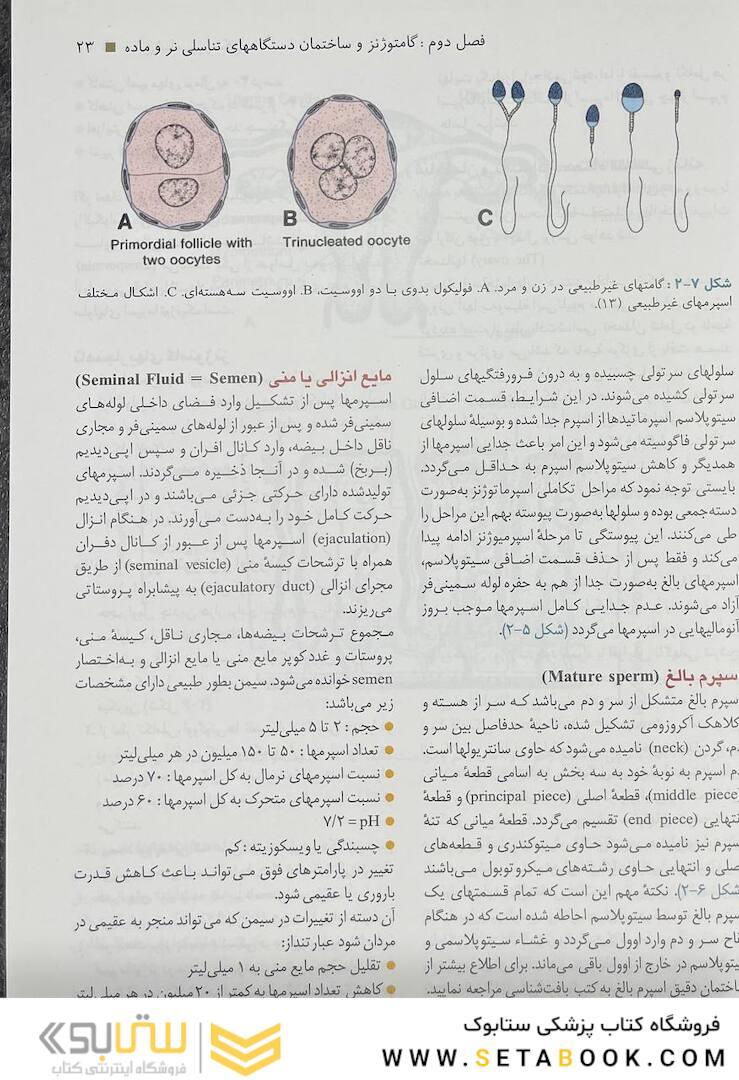 فصل دوم : گامتوژنز و ساختمان دستگاههای تناسلی نر و ماده ■ ۲۳
A
Primordial follicle with
two oocytes
B
Trinucleated oocyte
C
شکل ۷–۲ : گامتهای غیرطبیعی در زن و مرد. A. فولیکول بدوی با دو اووسیت، B. اووسیت سه‌هسته‌ای. C. اشکال مختلف
اسپرمهای غیرطبیعی (۱۳).
سلولهای سرتولی چسبیده و به درون فرورفتگیهای سلول
سرتولی کشیده می‌شوند. در این شرایط، قسمت اضافی
سیتوپلاسم اسپرماتیدها از اسپرم جدا شده و بوسیلهٔ سلولهای
سرتولی فاگوسیته می‌شود و این امر باعث جدایی اسپرمها از
همدیگر و کاهش سیتوپلاسم اسپرم به حداقل می‌گردد.
بایستی توجه نمود که مراحل تکاملی اسپرماتوژنز به‌صورت
دسته‌جمعی بوده و سلولها به‌صورت پیوسته بهم این مراحل را
طی می‌کنند. این پیوستگی تا مرحلهٔ اسپرمیوژنز ادامه پیدا
می‌کند و فقط پس از حذف قسمت اضافی سیتوپلاسم،
اسپرمهای بالغ به‌صورت جدا از هم به حفره لوله سمینی‌فر
آزاد می‌شوند. عدم جدایی کامل اسپرمها موجب بروز
آنومالیهایی در اسپرمها می‌گردد (شکل ۵–۲).
سپرم بالغ (Mature sperm)
سپرم بالغ متشکل از سر و دم می‌باشد که سر از هسته و
کلاهک آکروزومی تشکیل شده، ناحیهٔ حدفاصل بین سر و
دم، گردن (neck) نامیده می‌شود که حاوی سانتریولها است.
دم اسپرم به نوبهٔ خود به سه بخش به اسامی قطعهٔ میانی
(middle piece)، قطعهٔ اصلی (principal piece) و قطعهٔ
نتهایی (end piece) تقسیم می‌گردد. قطعهٔ میانی که تنهٔ
سپرم نیز نامیده می‌شود حاوی میتوکندری و قطعه‌های
صلی و انتهایی حاوی رشته‌های میکروتوبول می‌باشند
شکل ۶–۲). نکتهٔ مهم این است که تمام قسمتهای یک
سپرم بالغ توسط سیتوپلاسم احاطه شده است که در هنگام
قاح سر و دم وارد اوول می‌گردد و غشاء سیتوپلاسمی و
سیتوپلاسم در خارج از اوول باقی می‌ماند. برای اطلاع بیشتر از
ساختمان دقیق اسپرم بالغ به کتب بافت‌شناسی مراجعه نمایید.
مایع انزالی یا منی (Seminal Fluid = Semen)
اسپرمها پس از تشکیل وارد فضای داخلی لوله‌های
سمینی‌فر شده و پس از عبور از لوله‌های سمینی‌فر و مجاری
ناقل داخل بیضه، وارد کانال افران و سپس اپی‌دیدیم
(بربخ) شده و در آنجا ذخیره می‌گردند. اسپرمهای
تولیدشده دارای حرکتی جزئی می‌باشند و در اپی‌دیدیم
حرکت کامل خود را به‌دست می‌آورند. در هنگام انزال
(ejaculation) اسپرمها پس از عبور از کانال دفران
همراه با ترشحات کیسهٔ منی (seminal vesicle) از طریق
مجرای انزالی (ejaculatory duct) به پیشابراه پروستاتی
می‌ریزند.
مجموع ترشحات بیضه‌ها، مجاری ناقل، کیسهٔ منی،
پروستات و غدد کوپر مایع منی یا مایع انزالی و به‌اختصار
semen خوانده می‌شود. سیمن بطور طبیعی دارای مشخصات
زیر می‌باشد:
● حجم : ۲ تا ۵ میلی‌لیتر
● تعداد اسپرمها : ۵۰ تا ۱۵۰ میلیون در هر میلی‌لیتر
● نسبت اسپرمهای نرمال به کل اسپرمها : ۷۰ درصد
● نسبت اسپرمهای متحرک به کل اسپرمها : ۶۰ درصد
● pH = ۷/۲
● چسبندگی یا ویسکوزیته : کم
تغییر در پارامترهای فوق می‌تواند باعث کاهش قدرت
باروری یا عقیمی شود.
آن دسته از تغییرات در سیمن که می‌تواند منجر به عقیمی در
مردان شود عبارتنداز:
● تقلیل حجم مایع منی به ۱ میلی‌لیتر
● کاهش تعداد اسپرمها به کمتر از ۲۰ میلیون در هر میلی‌لیتر
ستابوک
فروشگاه اینترنتی کتاب
فروشگاه کتاب پزشکی ستابوک
WWW.SETABOOK.COM